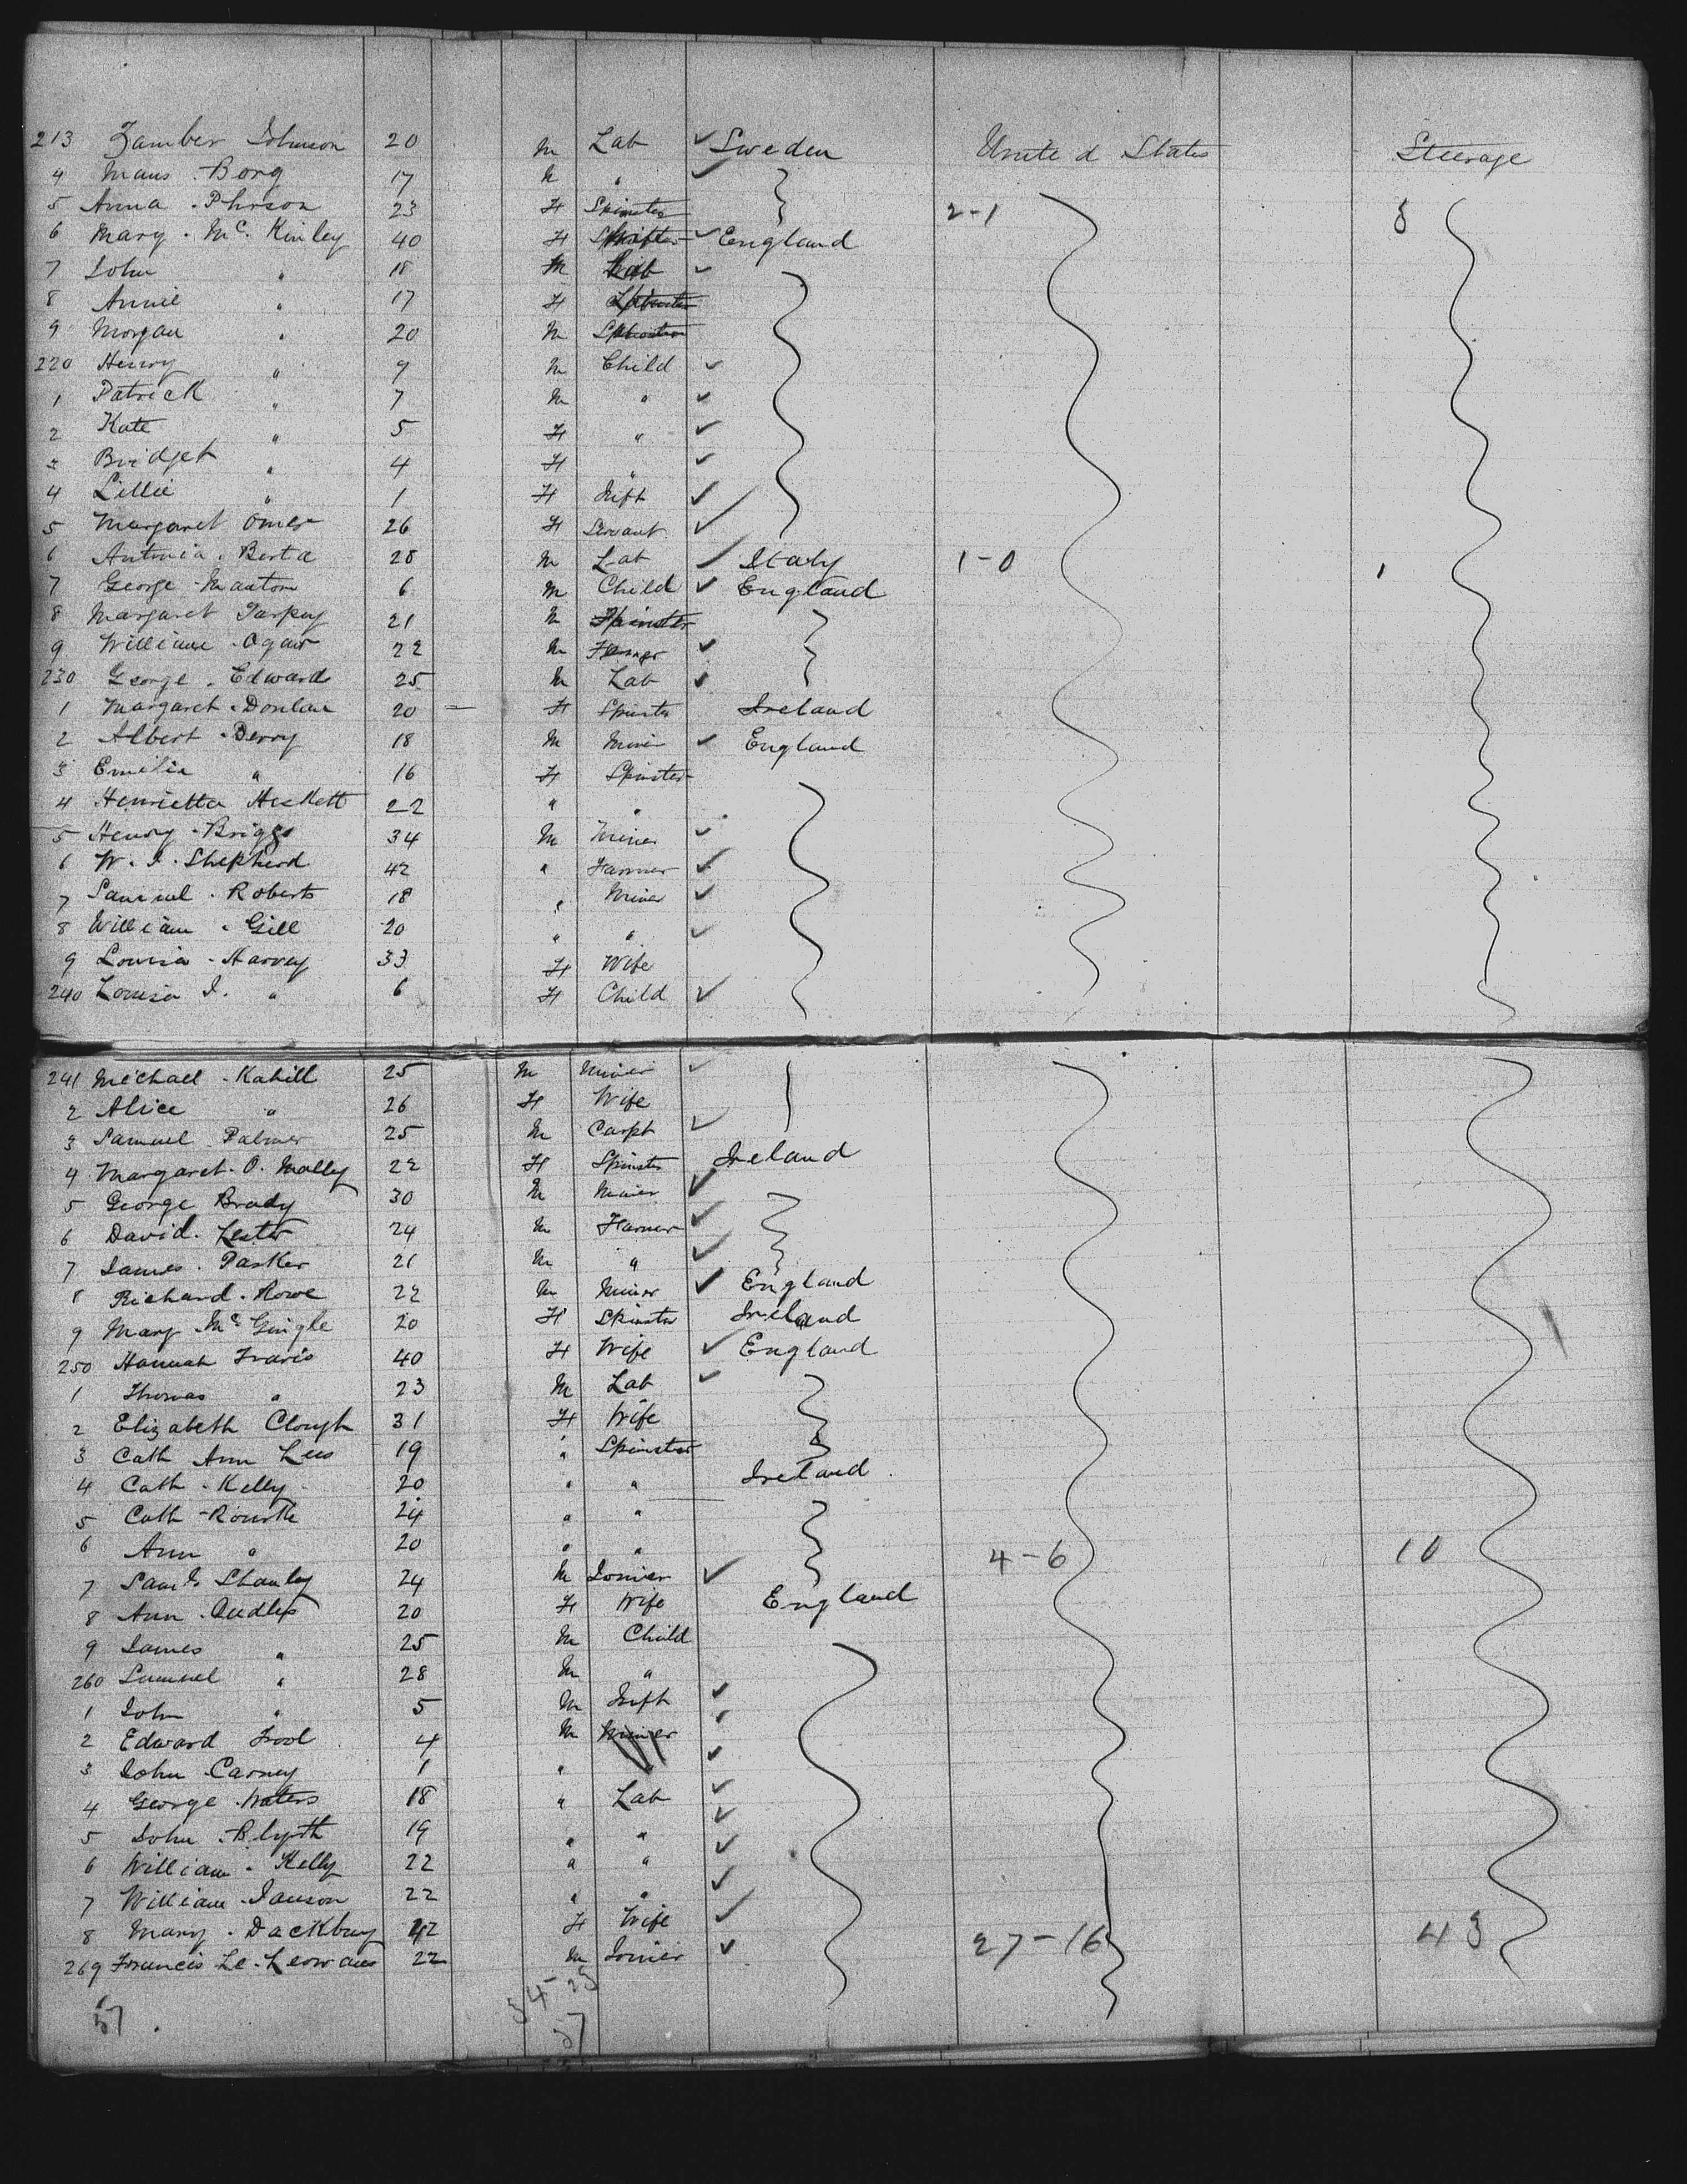 213 Zamber Johnson 20 M Lab ✓ Sweden United States Steerage
4 Maus Borg 17 M " ✓
5 Anna Phrson 23 F Spinster 2-1 3
6 Mary Mc. Kinley 40 F ✓ England
7 John " 18 M Lab ✓
8 Annie " 17 F
9 Morgan " 20 M
220 Henry " 9 M Child ✓
1 Patrick " 7 M " ✓
2 Kate " 5 F " ✓
3 Bridget " 4 F " ✓
4 Lillie " 1 F Inft ✓
5 Margaret Omer 26 F Servant ✓
6 Antonia Berta 28 M Lab ✓ Italy 1-0 1
7 George Maatom 6 M Child ✓ England
8 Margaret Tarpey 21 M Spinster
9 William Ogaw 22 M Farmer ✓
230 George Edwards 25 M Lab ✓
1 Margaret Donlan 20 — F Spinster Ireland
2 Albert Berry 18 M Miner ✓ England
3 Emilia " 16 F Spinster
4 Henrietta Heckett 22 " "
5 Henry Briggs 34 M Miner ✓
6 W. J. Shepherd 42 " Farmer ✓
7 Samuel Roberts 18 " Miner ✓
8 William Gill 20 " " ✓
9 Louisa Harvey 33 F Wife
240 Louisa J. " 6 F Child ✓
241 Michael Kahill 25 M Miner ✓
2 Alice " 26 F Wife
3 Samuel Palmer 25 M Carpt ✓
4 Margaret O. Mally 22 F Spinster Ireland
5 George Brady 30 M Miner ✓
6 David Lester 24 M Farmer ✓
7 James Parker 21 M " ✓
8 Richard Rowe 22 M Miner ✓ England
9 Mary Mc Gingle 20 F Spinster Ireland
250 Hannah Travis 40 F Wife ✓ England
1 Thomas " 23 M Lab ✓
2 Elizabeth Clough 31 F Wife
3 Cath Ann Lees 19 " Spinster
4 Cath Kelly 20 " " Ireland
5 Cath Rourke 24 " "
6 Ann " 20 " " 4-6 10
7 Saml. Shanley 24 M Joiner ✓
8 Ann 20 F Wife England
9 James " 25 M Child
260 Samuel " 28 M "
1 John " 5 M Inft ✓
2 Edward Frost 4 M Miner ✓
3 John Carney 1 " " ✓
4 George Waters 18 " Lab ✓
5 John Blyth 19 " " ✓
6 William Kelly 22 " " ✓
7 William Janson 22 " " ✓
8 Mary Dackbury 42 F Wife ✓
269 Francis Le 22 M Joiner ✓ 27-16 43
57 34-23
57